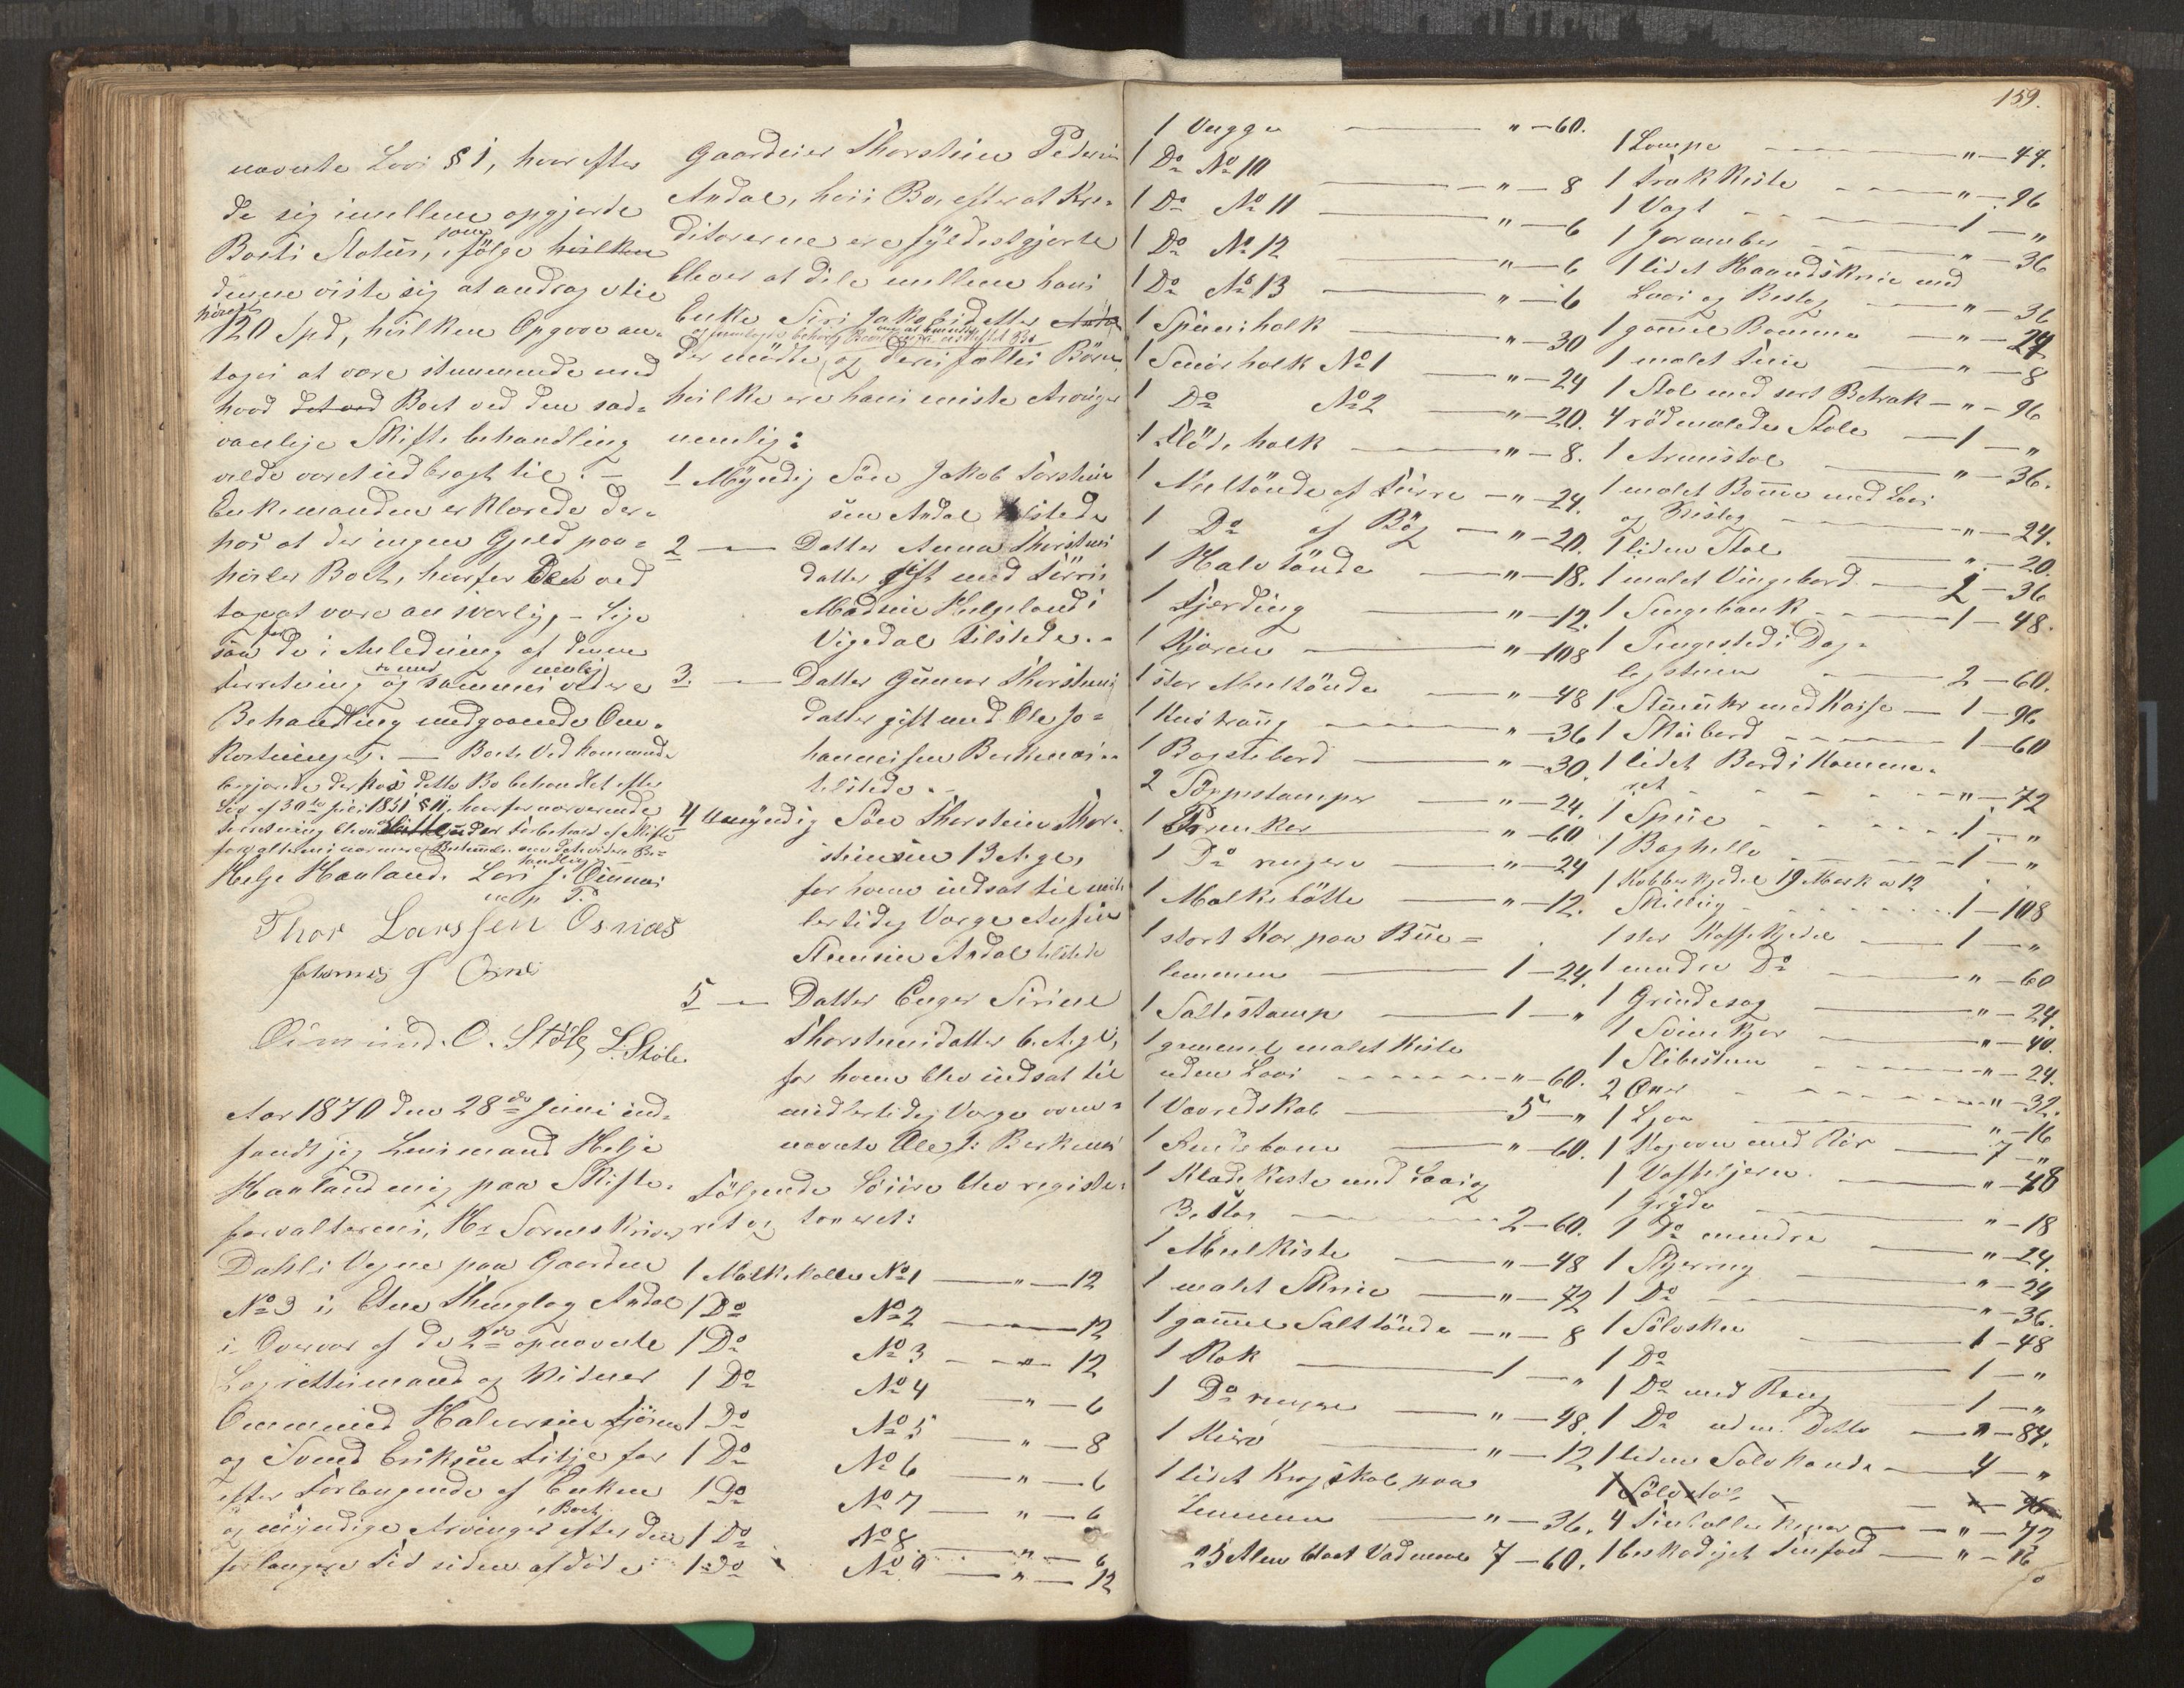 nævnte Lovs § 1, hvorefter
de sig imellem opgjorde
Boets Status, ifølge som hvilken
denne viste sig at andrage til
høiest 120 Spd, hvilken Opgave an-
toges at være stemmende med
hvad det ved Boet ved den sæd-
vanlige Skiftebehandling
vilde været indbragt til. –
Enkemanden erklærede der-
hos at der ingen Gjeld paa-
hviler Boet, hvorfor
at være ansvarlig, – lige
saa for de i Anledning af denne
Forretning og sammes videre
Behandling medgaaende Om-
kostninger. — Boets Vedkommende
begjærede derhos dette Bo behandlet efter
Lov af 30te Juli 1851 § 11, hvorfor nærværende
Forretning blev sluttet under Forbehold af Skifte-
forvalterens nærmere Bestemmelse om dets videre Be-
handling. –
Helge Haaland. Lars J. Ømnes
m. p. P.
Thor Larssen Osnæs
Johannes J Osnes
Ømund. O. Støle L. Støle.
Aar 1870 den 28de Juni ind-
fandt jeg Lensmand Helge
Haaland mig paa Skifte-
forvalterens, Hr Sorenskriver
Dahls Vegne paa Gaarden
No 3 i Etne Thinglag Ændal
i Overvær af de 2de opnævnte
Lagrettesmænd og Vidner
Ommund Halvorsen Fjøsne
og Svend Eriksen Silje for
efter Forlangende af Enken
og myndige Arvinger i Boet efter den
for længere Tid siden afdøde
Gaardeier Thorstein Pedersen
Ændal, hvis Bo, efterat Kre-
ditorerne ere fyldestgjorte
bliver at dele mellem hans
Enke Siri Jakobsdatter
der mødte, og deres fælles Børn,
hvilke ere hans eneste Arvinger
nemlig:
1 Myndig Søn Jakob Torstein-
sen Ændal tilstede
2 — Datter Anna Thorsteins
datter gift med Tørris
Madsen Helgeland i
Vigedal tilstede. –
3. — Datter Gunnor Thorsteins
datter gift med Ole Jo-
hannessen Berkenæs
tilstede. –
4 Umyndig Søn Thorstein Thor-
steinsen 13 Ar gl,
for hvem indsat til mid-
lertidig Værge
Ændal tilstede
5 — Datter Enger Sirine
Thorsteinsdatter 6 Ar gl,
for hvem blev indsat til
midlertidig Værge oven-
nævnte Ole J. Berkenes
Følgende Løsøre blev registe-
ret og taxeret:
1 Melkekolle No 1 — " — 12
1 Do No 2 — 12
1 Do No 3 — " — 12
1 Do No 4 — " — 6
1 Do No 5 — " — 8
1 Do No 6 — " — 6
1 Do No 7 — " — 6
1 Do No 8 — " — 6
1 Do No 9 — " — 12
159.
1 Vugge — " — 60.
1 Do No 10 — " — 8
1 Do No 11 — " — 6
1 Do No 12 — " — 6
1 Do No 13 — " — 6
1 Spiseholk — " — 30
1 Smørholk No 1 — " — 24
1 Do No 2 — " — 20.
1 Flødeholk — " — 8.
1 Meeltønde af Furre — " — 24.
1 Do af Bøg — " — 20.
1 Halvtønde — " — 18.
1 Fjerding — " — 12.
1 Kjærne — " — 108
1 stor Meeltønde — " — 48
1 Knotraug — " — 36
1 Bagstebord — " — 30.
2 Søppestamper — " — 24.
1 — " — 60
1 Do ringere — " — 24
1 Melkebøtte — " — 12.
1 stort Kar paa Bue-
lemmen — 1 — 24.
1 Saltestamp — 1 — "
1 gammel malet Kiste
uden Laas — " — 60.
1 Vævredskab — 5 — "
1 — " — 60.
1 Klædekiste med Laas og
Beslag — 2 — 60.
1 Meelkiste — " — 48
1 malet Skrin — " — 72
1 gammel Salttønde — " — 8
1 Rok — 1 — "
1 Do ringere — " — 48.
1 Kurv — " — 12
1 lidet Krogskab paa
Lemmen — " — 36.
25 Alen blaat Vadmel 7 — 60.
1 Lampe — " — 44.
1 — " — 96
1 Vægt — 1 — "
1 Jernamber — " — 36
1 lidet Haandskrin med
Laas og Beslag — " — 36
1 gammel Bomme — " — 24
1 malet Tine — " — 8
1 Stol med sort Betræk — " — 96
4 rødmalede Stole — 1 — "
1 Armstol — " — 36.
1 malet Bomme med Laas
og Beslag — " — 24.
1 liden Stol — " — 20.
1 malet Vingebord — 2 — 36
1 Sengebænk — 1 — 48.
1 Sengested i Dag-
ligstuen — 2 — 60.
1 Stueuhr med Kasse — 1 — 96
1 Skivbord — 1 — 60
1 lidet Bord i Kamme-
ret — " — 72
1 — 1 — "
1 Baghelle — 1 — "
1 Kobberkjedel 19 Mark a 12
Skilling — 1 — 108
1 stor Kaffekjedel — 1 — "
1 mindre Do — " — 60
1 Grindesag — " — 24.
1 — " — 40.
1 Slibesten — " — 24.
2 Øxer — " — 32.
1 Ljaa — " — 16
1 Kogovn med Rør — 7 — "
1 Vaffeljern — " — 48
1 Gryde — " — 18
1 Do mindre — " — 24.
1 — " — 24
1 Do — " — 36.
1 Sølvskee — 1 — 48
1 Do — 1 — "
1 Do med Ring — 1 — "
1 Do uden Ditto — " — 84.
1 liden Sølvkande — 4 — "
4 Tintallerkener — " — 72
1 beskadiget Tinfad — " — 16